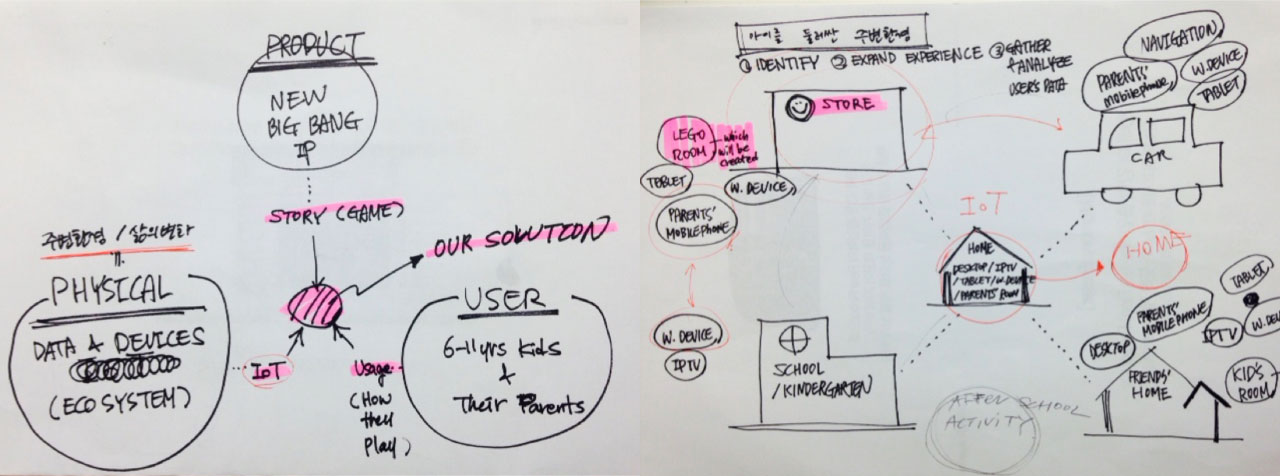 PRODUCT
NEW
BIG BANG
IP
STORY (GAME)
주변환경 / 삶의변화
PHYSICAL
DATA & DEVICES
(ECO SYSTEM)
IoT
OUR SOLUTION
USER
6-11 yrs Kids
+
Their Parents
Usage
(HOW
they
Play)
아이를 둘러싼 주변환경
① IDENTIFY ② EXPAND EXPERIENCE ③ GATHER
& ANALYZE
USER'S DATA
STORE
LEGO
ROOM
which
will be
created
TABLET
W. DEVICE
PARENTS'
MOBILEPHONE
W. DEVICE
IPTV
NAVIGATION
PARENTS'
mobilephone
W. DEVICE
TABLET
CAR
IoT
HOME
DESKTOP / IPTV
/ TABLET / W. DEVICE
/ PARENTS' ROOM
HOME
SCHOOL
/ KINDERGARTEN
AFTER SCHOOL
ACTIVITY
TABLET
PARENTS'
MOBILEPHONE
IPTV
W. DEVI
DESKTOP
FRIENDS'
HOME
KID'S
ROOM